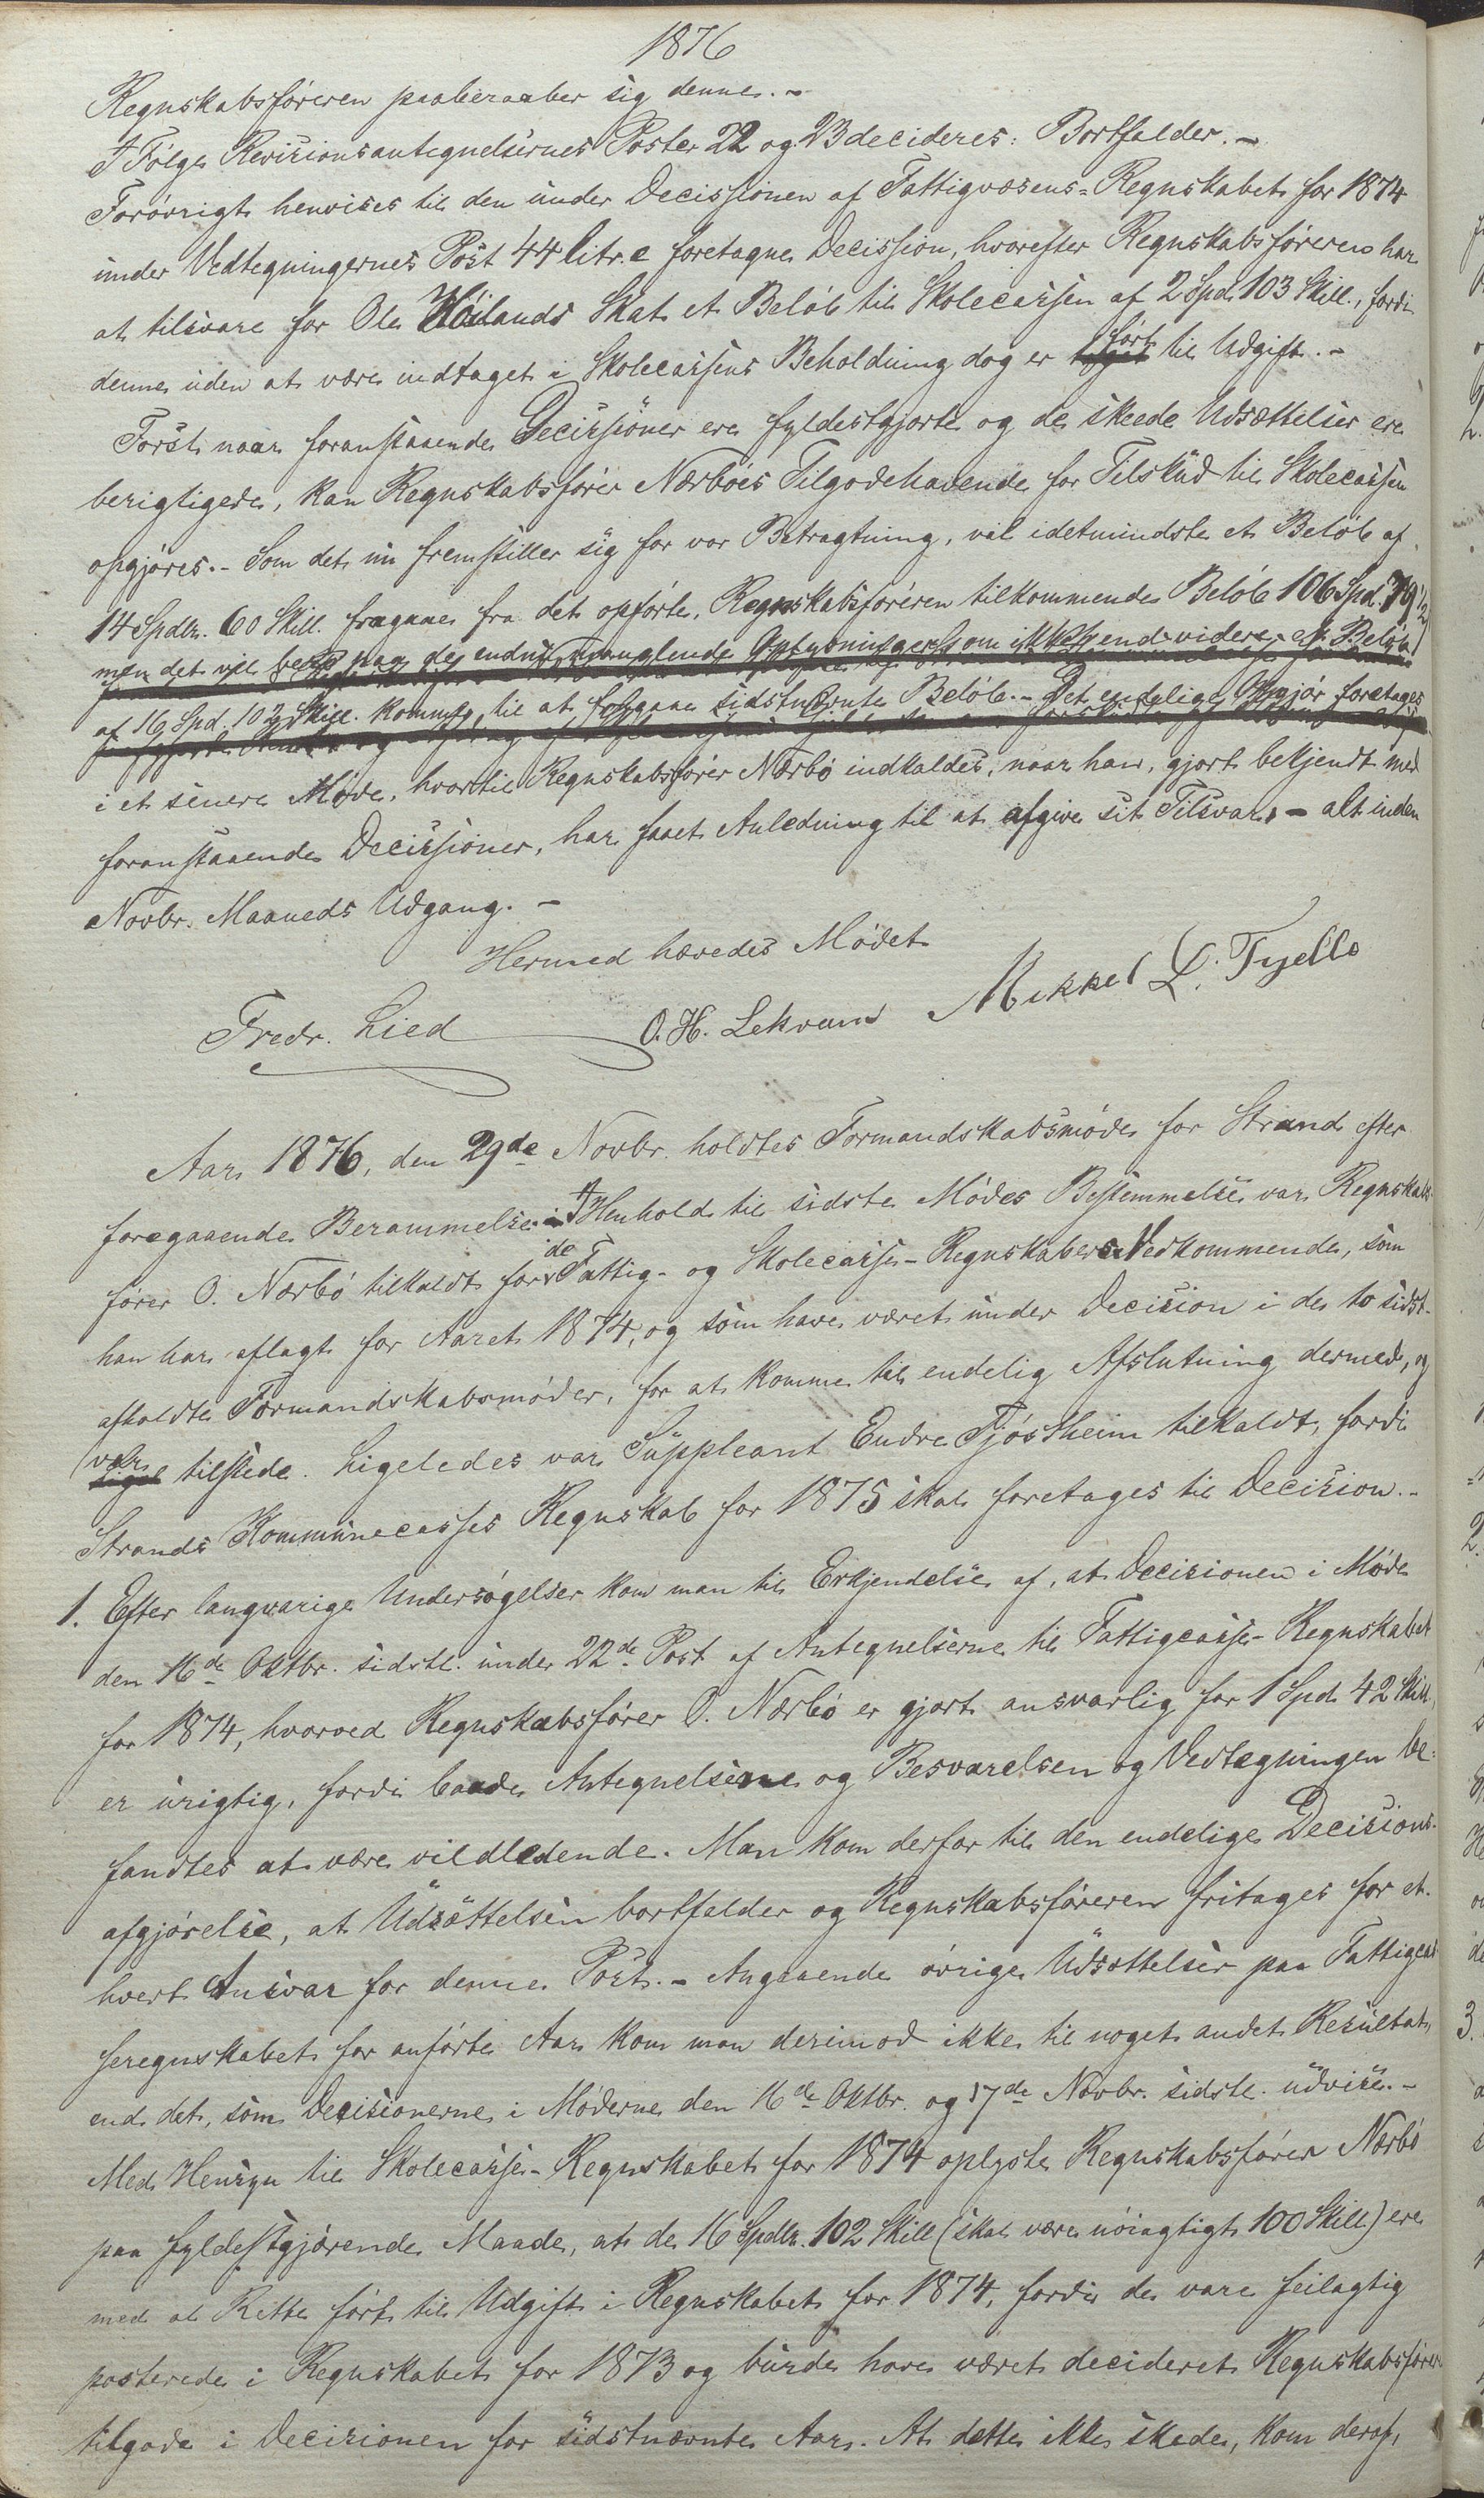 1876
Regnskabsføreren paaberaaber sig denne. -
I Følge Revisionsantegnelsernes Poster 22 og 23 decideres: Bortfalder. -
Forøvrigt henvises til den under Decissionen af Fattigvæsens-Regnskabet for 1874
under Vedtegningernes Post 44 litr. c foretagne Decission, hvorefter Regnskabsføreren har
at tilsvare for Ole Höilands Skat et Beløb til Skolecassen af 2 Spd. 103 Skill., fordi
denne uden at være indtaget i Skolecassens Beholdning dog er ført til Udgift. -
Først naar foranstaaende Decissioner ere fyldestgjorte og de skeede Udsættelser ere
berigtigede, kan Regnskabsfører Nærbøes Tilgodehavende for Tilskud til Skolecassen
opgjøres. - Som det nu fremstiller sig for vor Betragtning, vil idetmindste et Beløb af
14 Spdlr. 60 Skill. fragaae fra det opførte, Regnskabsføreren tilkommende Beløb 106 Spd. 79 1/2
men det vil bero paa de endnu manglende Oplysninger, om ikke endvidere et Beløb
af 16 Spd. 102 Skill. kommer til at fragaae sidstnævnte Beløb. - Det endelige Opgjør foretages
i et senere Møde, hvortil Regnskabsfører Nærbø indkaldes, naar han, gjort bekjendt med
foranstaaende Decissioner, har faaet Anledning til at afgive sit Tilsvar, - alt inden
Novbr. Maaneds Udgang. -
Hermed hævedes Mødet
Fredr. Lied O. H. Lekvam Mikkel L. Fjelle
Aar 1876, den 29de Novbr. holdtes Formandskabsmøde for Strand efter
foregaaende Berammelse. I Henhold til sidste Mødes Bestemmelse var Regnskabs-
fører O. Nærbø tilkaldt for de Fattig- og Skolecasse-Regnskabers Vedkommende, som
han har aflagt for Aaret 1874, og som have været under Decision i de to sidst-
afholdte Formandskabsmøder, for at komme til endelig Afslutning dermed, og
var tilstede. Ligeledes var Suppleant Endre Tjøstheim tilkaldt, fordi
Strands Kommunecasses Regnskab for 1875 skal foretages til Decision. -
1. Efter langvarige Undersøgelser kom man til Erkjendelse af, at Decisionen i Møde
den 16de Oktbr. sidstl. under 22de Post af Antegnelserne til Fattigcasse-Regnskabet
for 1874, hvorved Regnskabsfører O. Nærbø er gjort ansvarlig for 1 Spd. 42 Skill.,
er urigtig, fordi baade Antegnelserne og Besvarelsen og Vedtegningen be-
fandtes at være vildledende. Man kom derfor til den endelige Decisions-
afgjørelse, at Udsættelsen bortfalder og Regnskabsføreren fritages for et-
hvert Ansvar for denne Post. - Angaaende øvrige Udsættelser paa Fattigcas-
seregnskabet for anførte Aar kom man derimod ikke til noget andet Resultat,
end det, som Decisionerne i Møderne den 16de Oktbr. og 17de Novbr. sidstl. udvise. -
Med Hensyn til Skolecasse-Regnskabet for 1874 oplyste Regnskabsfører Nærbø
paa fyldestgjørende Maade, at de 16 Spdlr. 102 Skill. (skal være nøiagtigt 100 Skill.) ere
med al Rette ført til Udgift i Regnskabet for 1874, fordi de vare feilagtig
posterede i Regnskabet for 1873 og burde have været decideret Regnskabsfører
tilgode i Decisionen for sidstnævnte Aar. At dette ikke skede, kom deraf,